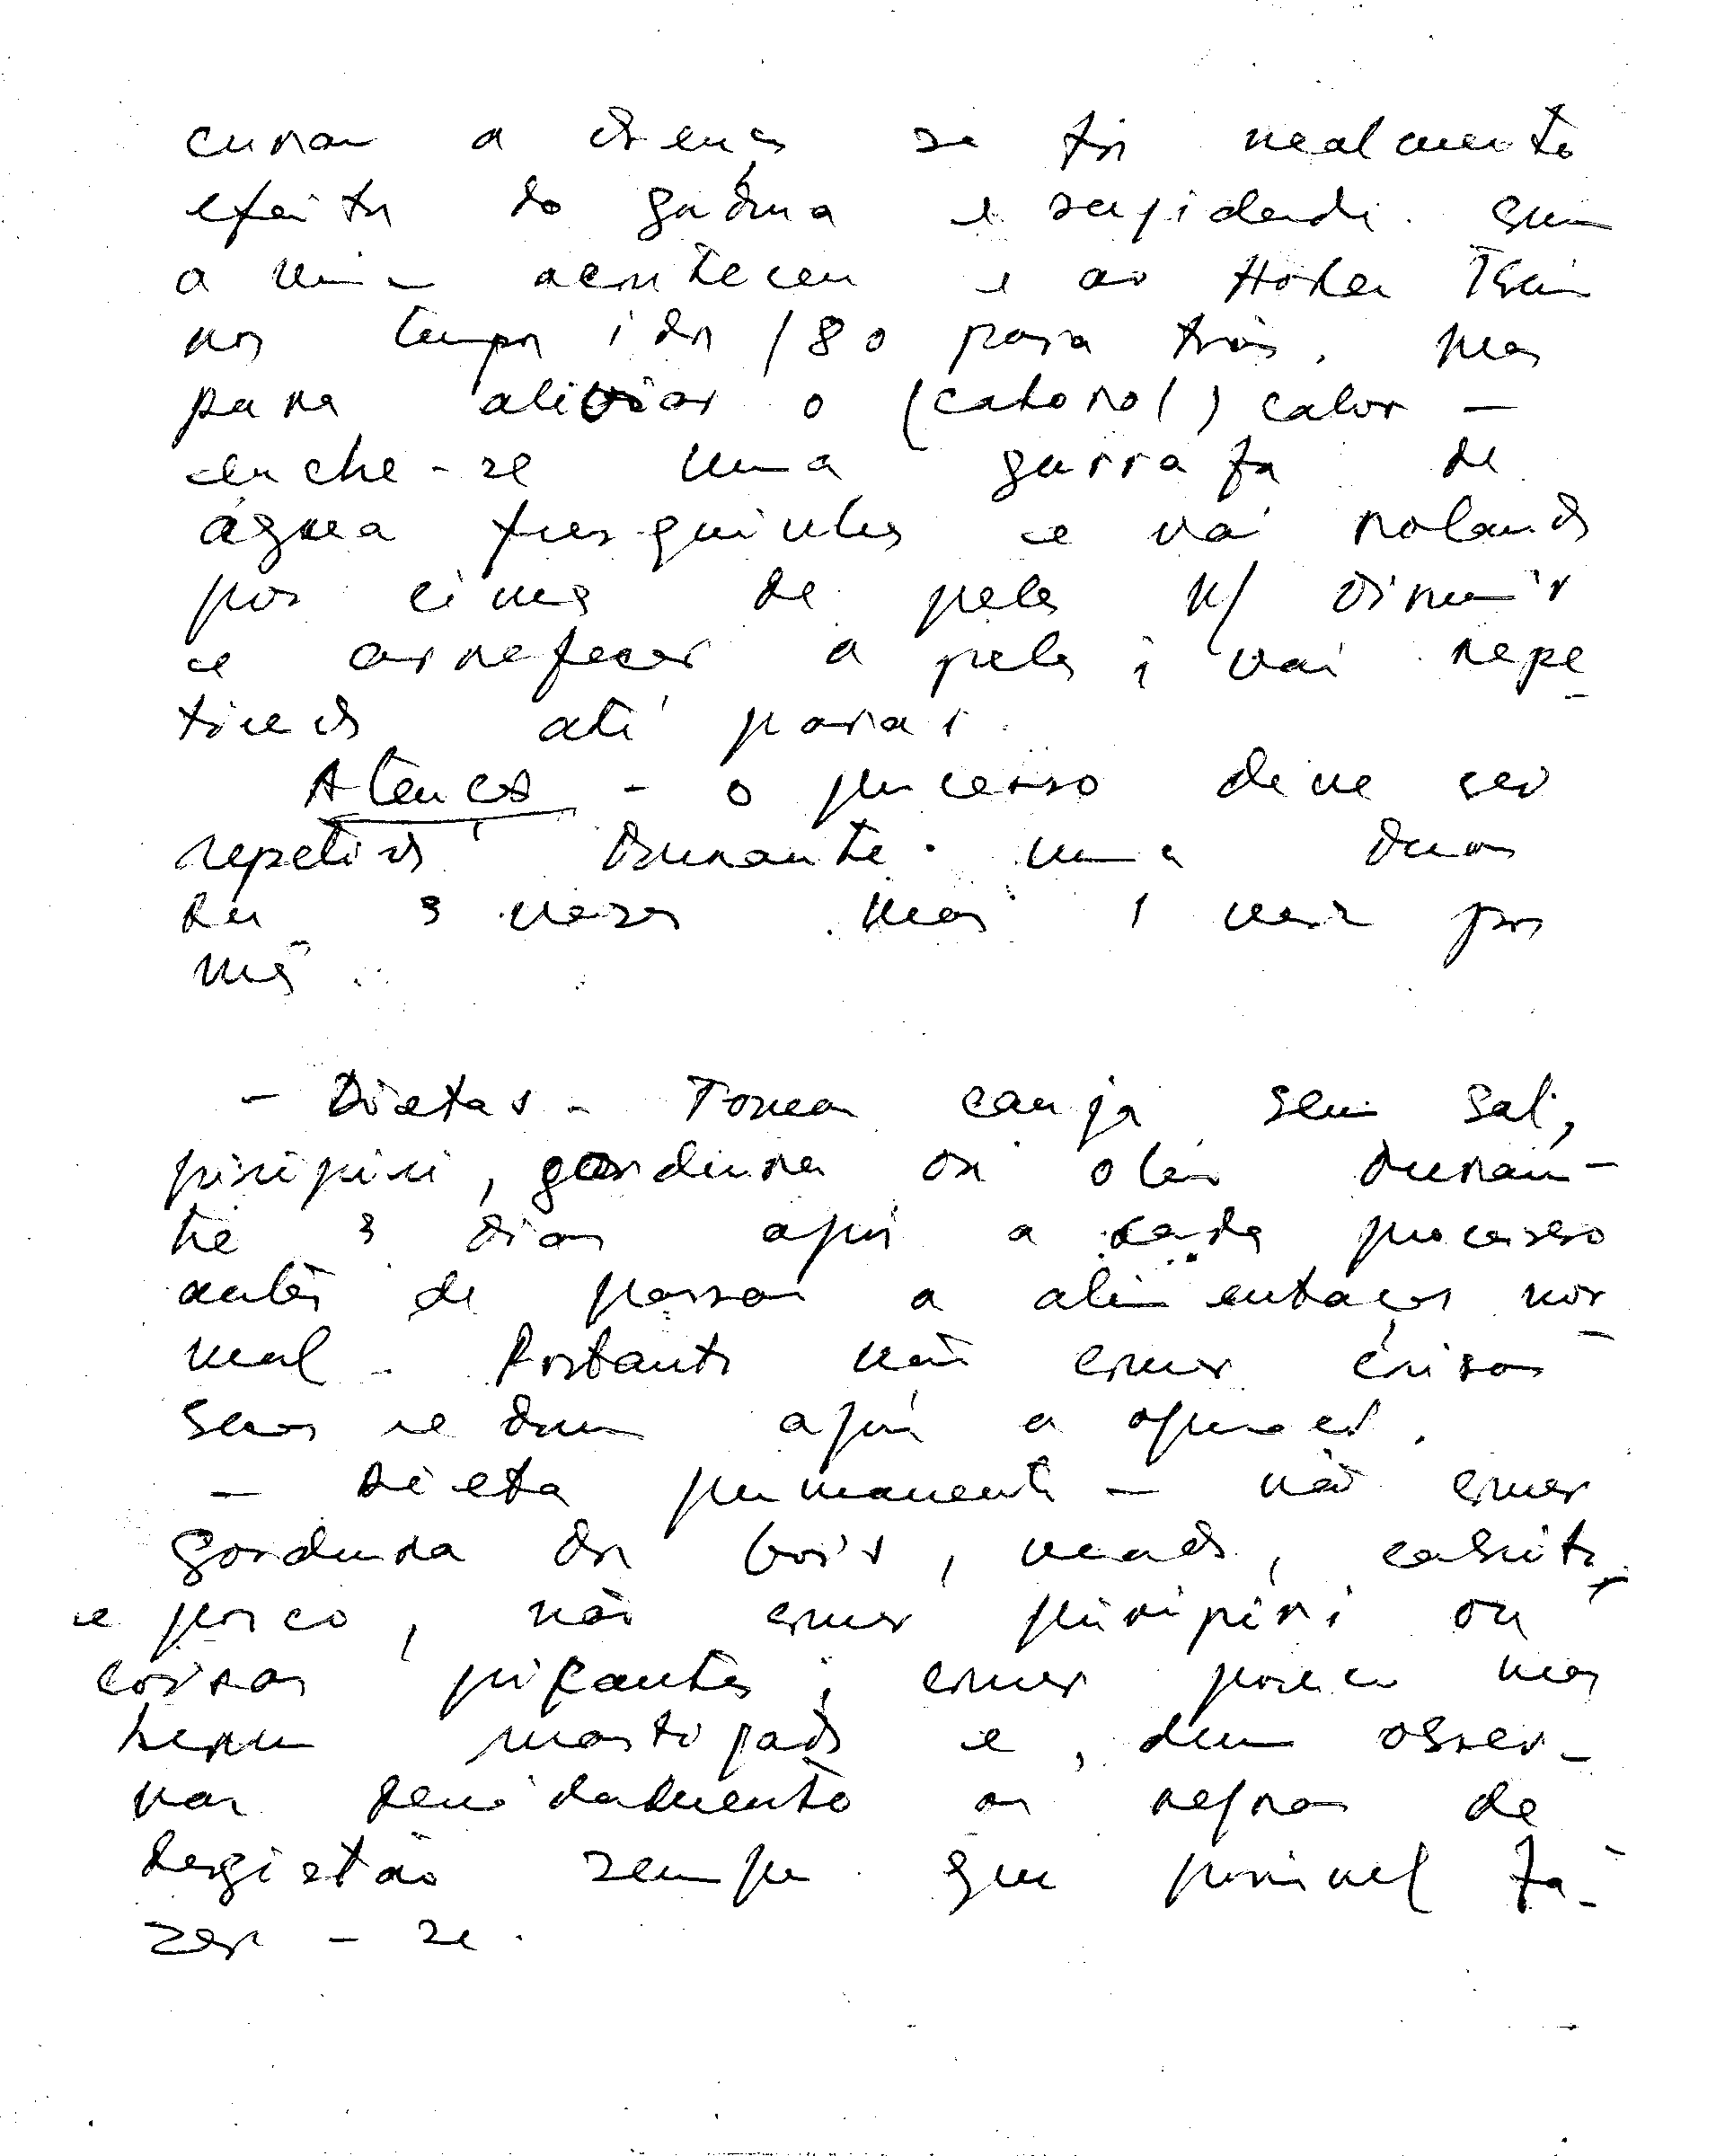 curar a doença se for realmente
efeito do gordura e
a mim aconteceu e ao
nos tempos idos /80 para trás. Mas
para aliviar o (catorol) calor –
enche-se uma garrafa de
água fresquinha e vai rolando
por cima da pele p/ diminuir
e arrefecer a pele; vai repe-
tindo até parar.
Atenção - o processo deve ser
repetido durante uma duas
ou 3 vezes mas 1 vez por
mês.
- Dietas - Tomar canja sem sal,
piripiri, gordura ou óleo duran-
te 3 dias após a cada processo
antes de passar a alimentação nor
mal - Portanto não comer coisas
secas e duras após a operação.
- Dieta permanente - não comer
gordura dos bois, veado, cabrito,
e porco, não comer piripiri ou
coisas picantes; comer pouco mas
bem mastigado e, deve obser-
var devidamente as regras de
degistão sempre que possível fa-
zer-se.